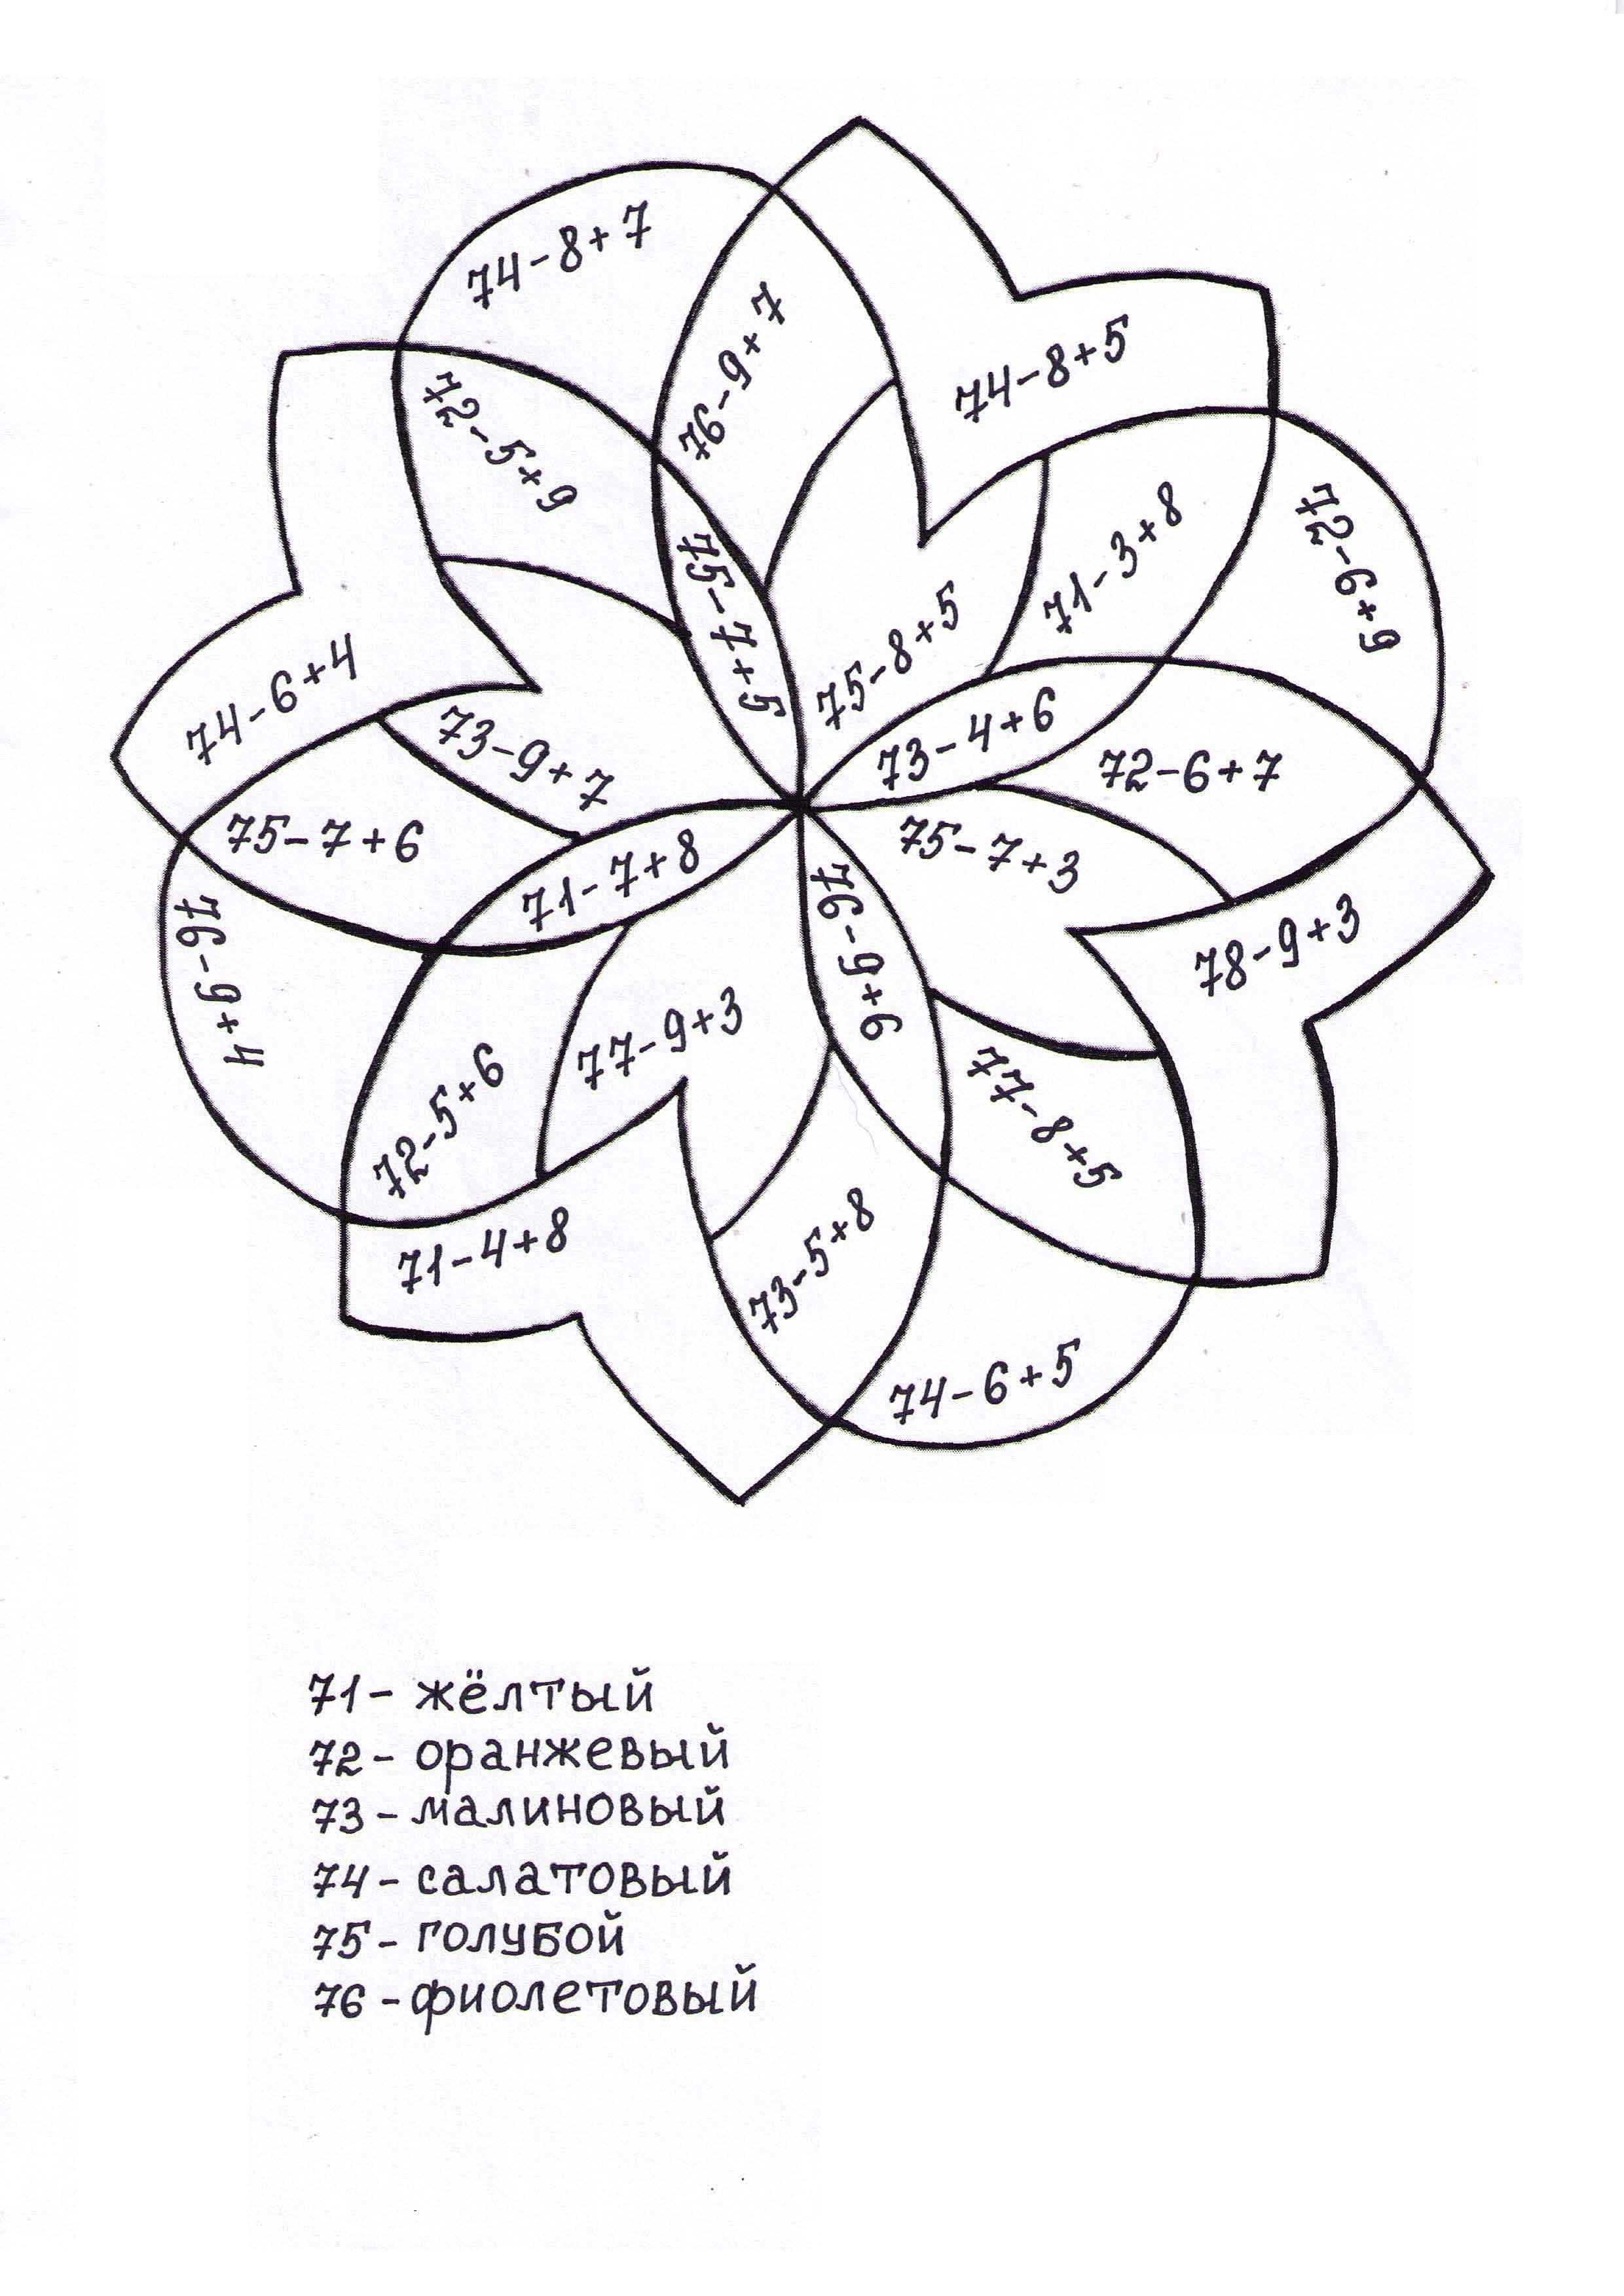 74-8+7
76-9+7
74-8+5
72-5+9
72-6+9
71-3+8
75-7+5
75-8+5
74-6+4
73-9+7
73-4+6
72-6+7
75-7+6
71-7+8
75-7+3
76-9+4
76-9+6
78-9+3
77-9+3
72-5+6
77-8+5
71-4+8
73-5+8
74-6+5
71- жёлтый
72- оранжевый
73- малиновый
74- салатовый
75- голубой
76- фиолетовый